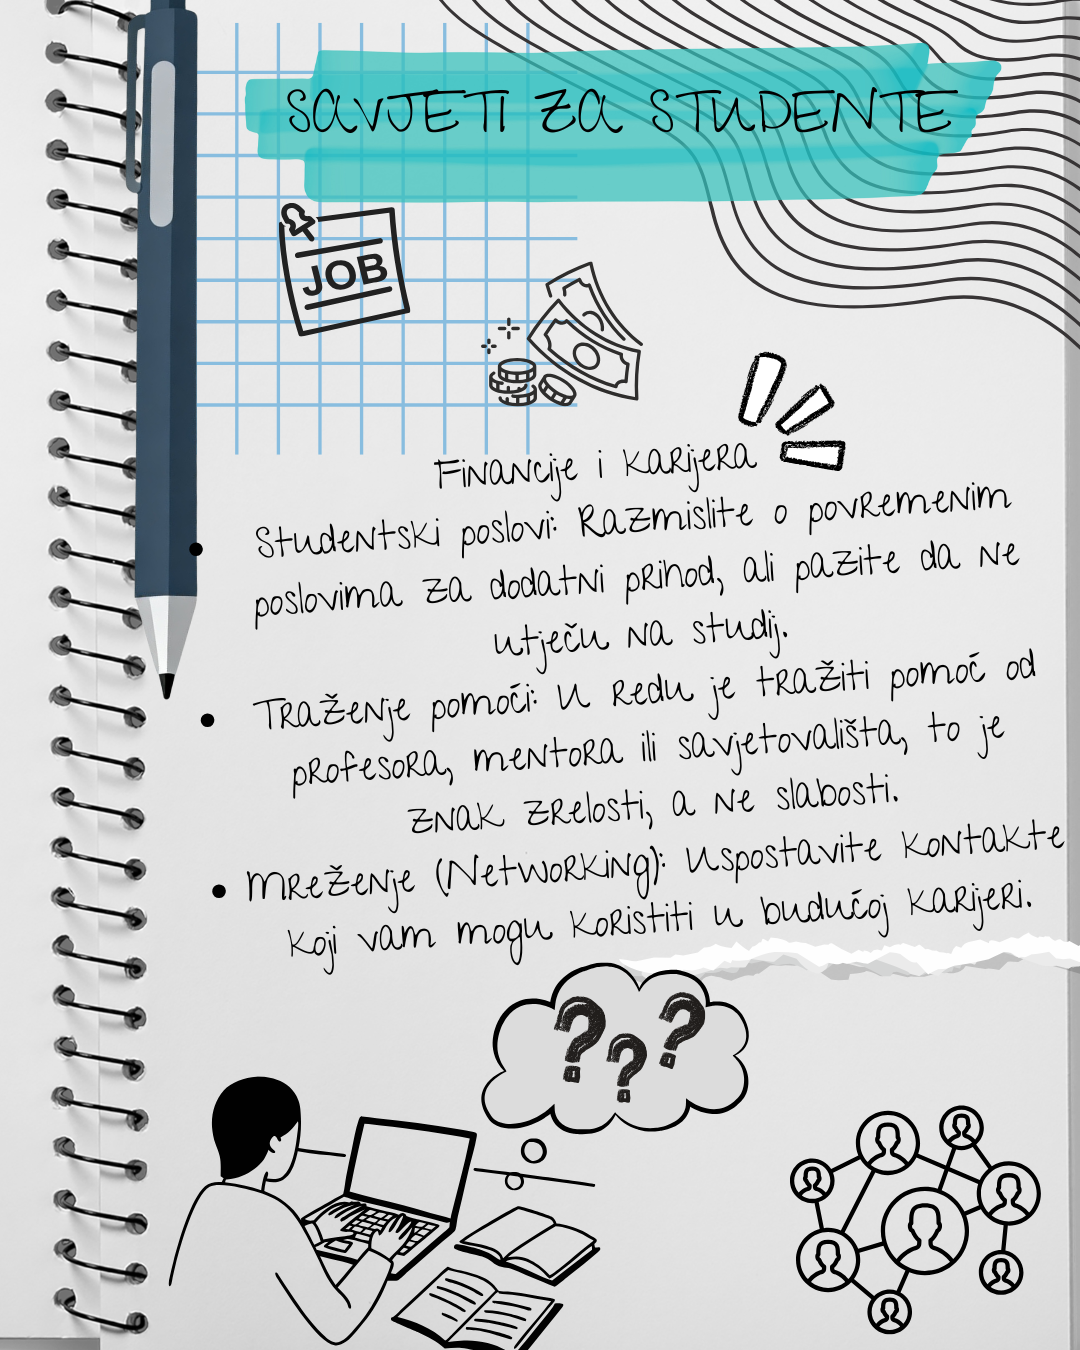 SAVJETI ZA STUDENTE
JOB
Financije i karijera
• Studentski poslovi: Razmislite o povremenim
poslovima za dodatni prihod, ali pazite da ne
utječu na studij.
• Traženje pomoći: U redu je tražiti pomoć od
profesora, mentora ili savjetovališta, to je
znak zrelosti, a ne slabosti.
• Mreženje (Networking): Uspostavite kontakte
koji vam mogu koristiti u budućoj karijeri.
? ? ?